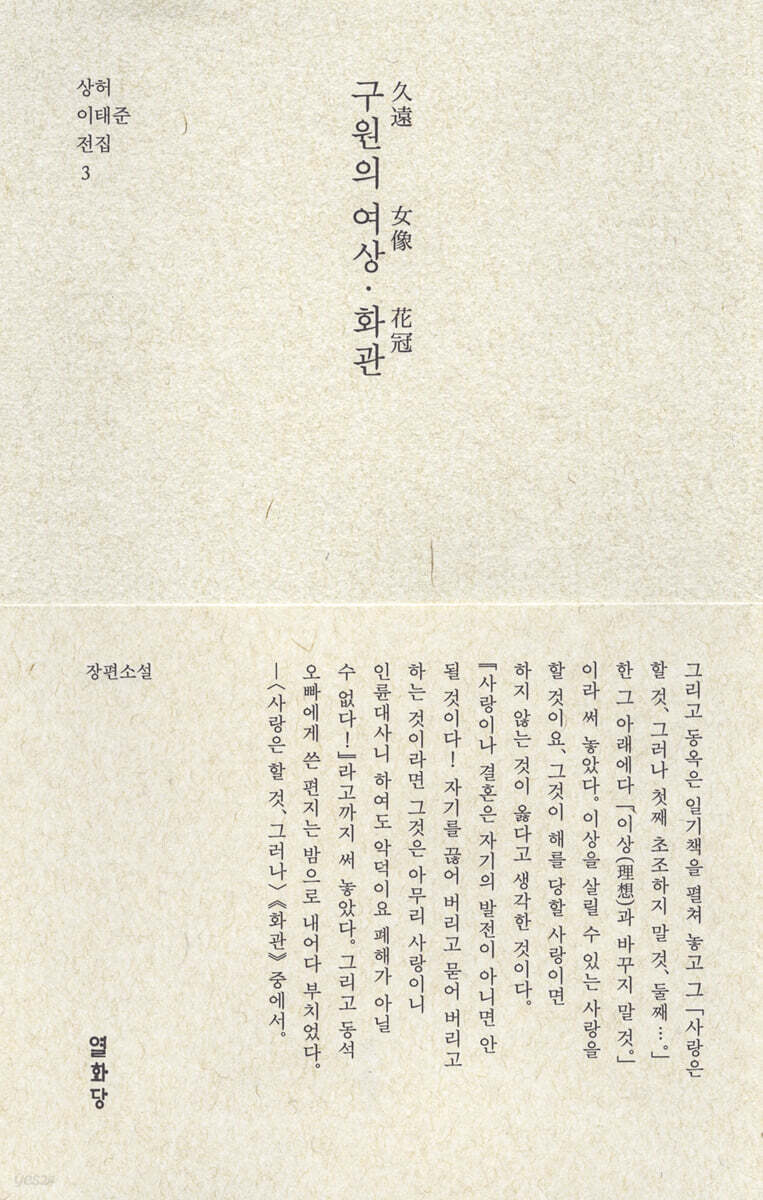 상허
이태준
전집
3
구원의 여상·화관
久遠 女像 花冠
장편소설
그리고 동옥은 일기책을 펼쳐 놓고 그 「사랑은
할 것、그러나 첫째 초조하지 말 것、둘째 …。」
한 그 아래에다 「이상(理想)과 바꾸지 말 것。」
이라 써 놓았다。이상을 살릴 수 있는 사랑을
할 것이요、그것이 해를 당할 사랑이면
하지 않는 것이 옳다고 생각한 것이다。
『사랑이나 결혼은 자기의 발전이 아니면 안
될 것이다! 자기를 끊어 버리고 묻어 버리고
하는 것이라면 그것은 아무리 사랑이니
인륜대사니 하여도 악덕이요 폐해가 아닐
수 없다!』라고까지 써 놓았다。그리고 동석
오빠에게 쓴 편지는 밤으로 내어다 부치었다。
—〈사랑은 할 것、그러나〉《화관》 중에서。
열화당
yes24